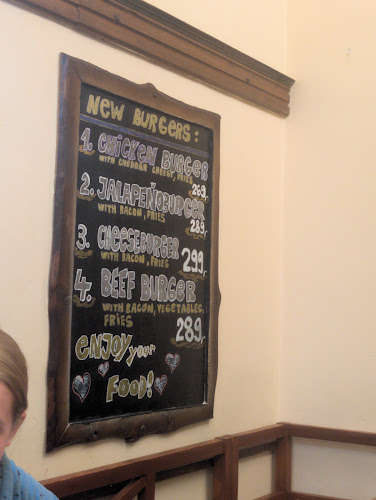 NEW BURGERS:
1. CHICKEN BURGER
WITH CHEDDAR CHEESE, FRIES
269,-
2. JALAPEŇO BURGER
WITH BACON, FRIES
289,-
3. CHEESEBURGER
WITH BACON, FRIES
299,-
4. BEEF BURGER
WITH BACON, VEGETABLES,
FRIES
289,-
ENJOY your
FOOD!